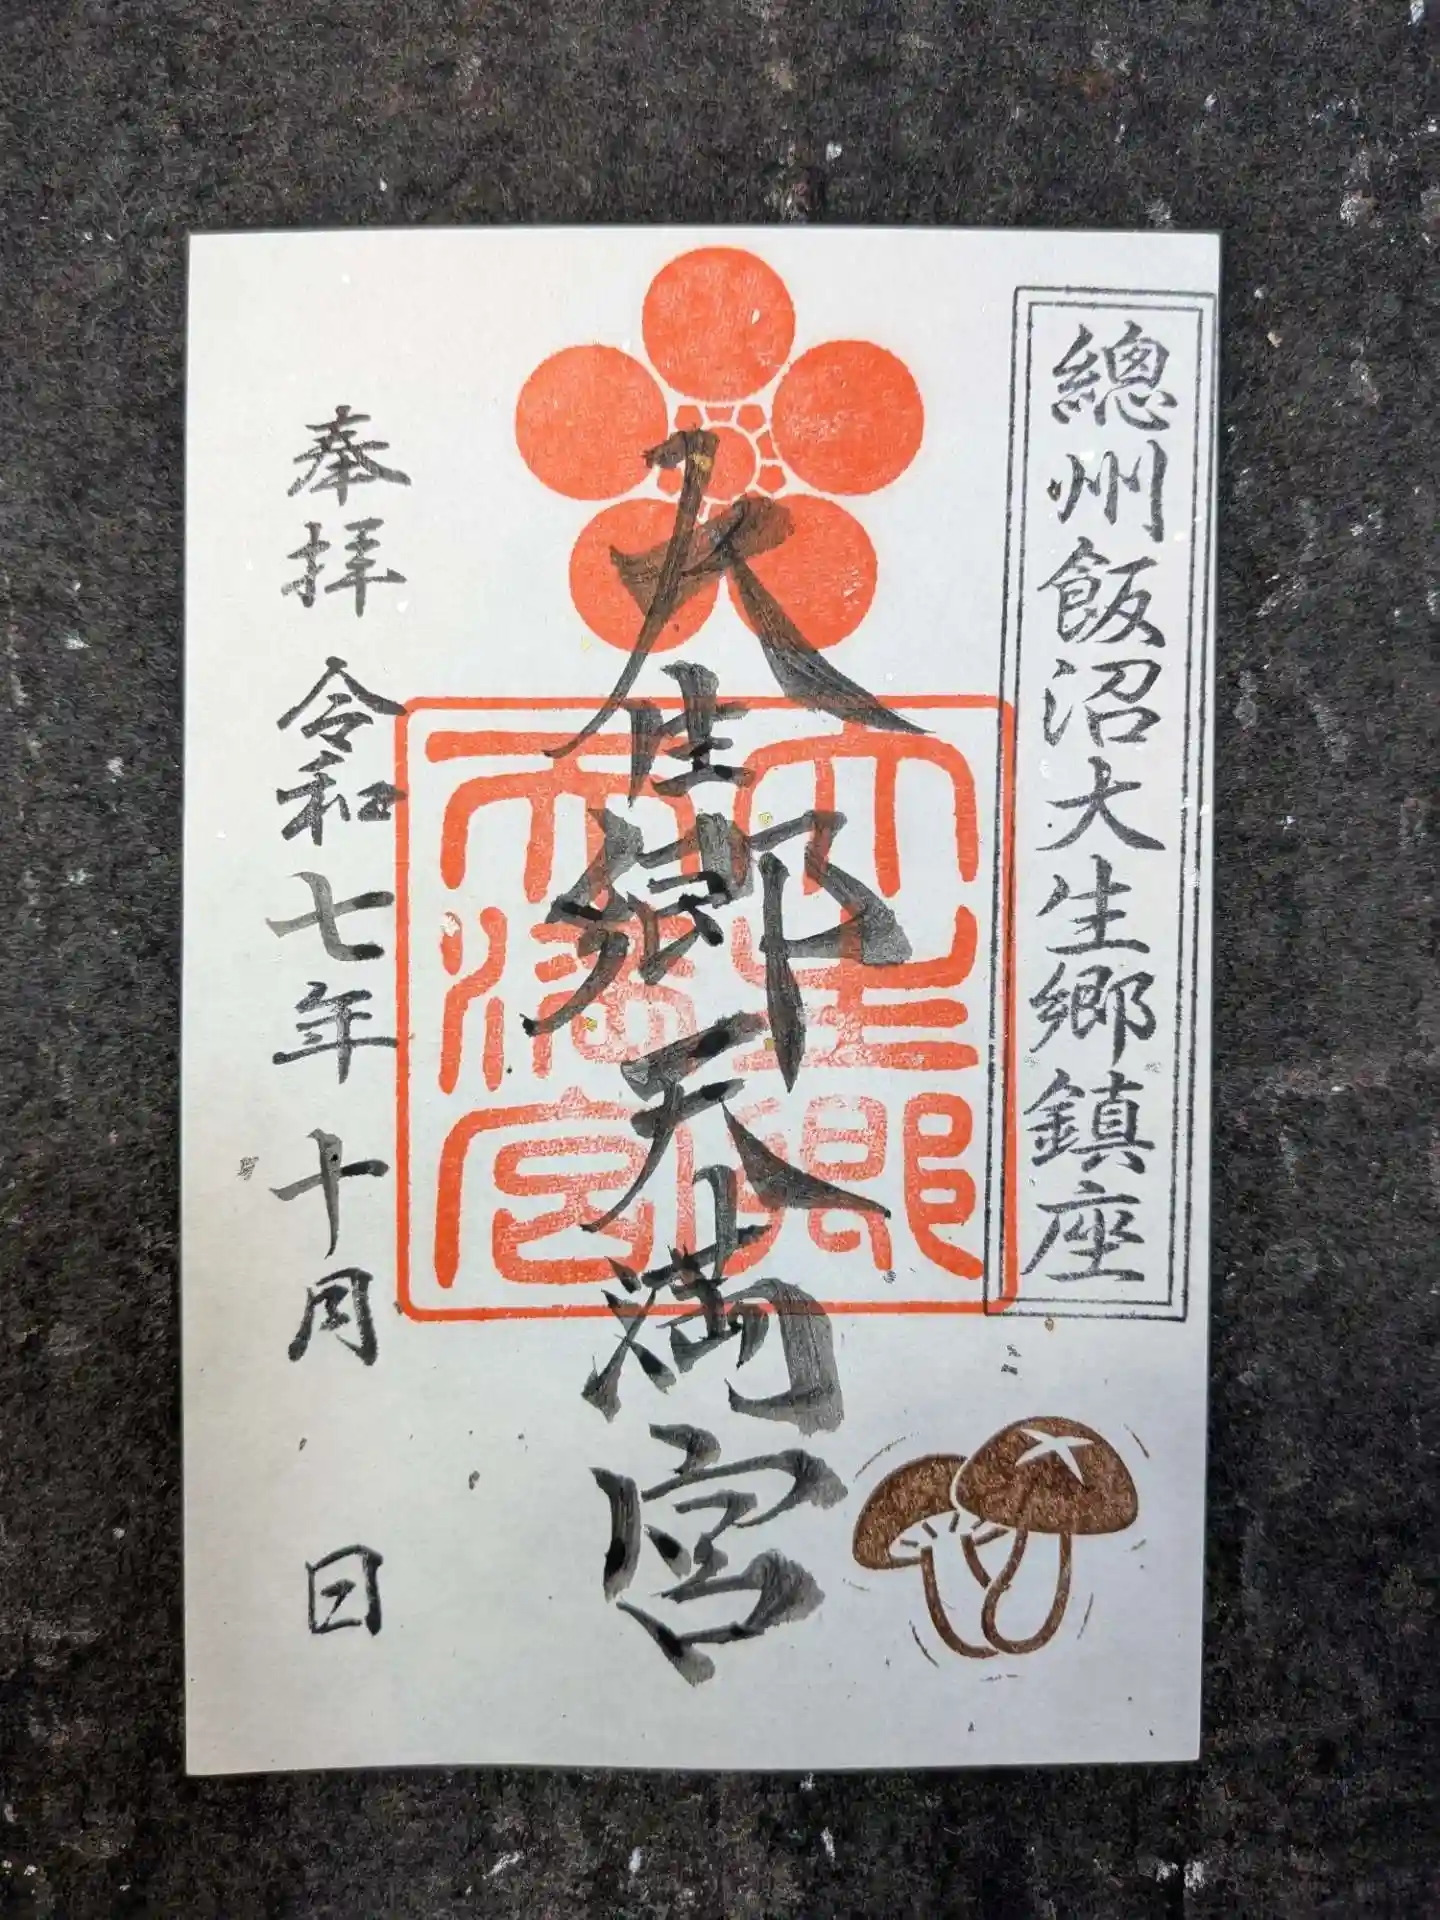 總州飯沼大生郷鎮座
大生郷天満宮
大生郷
天満宮
奉拝 令和七年十月 日